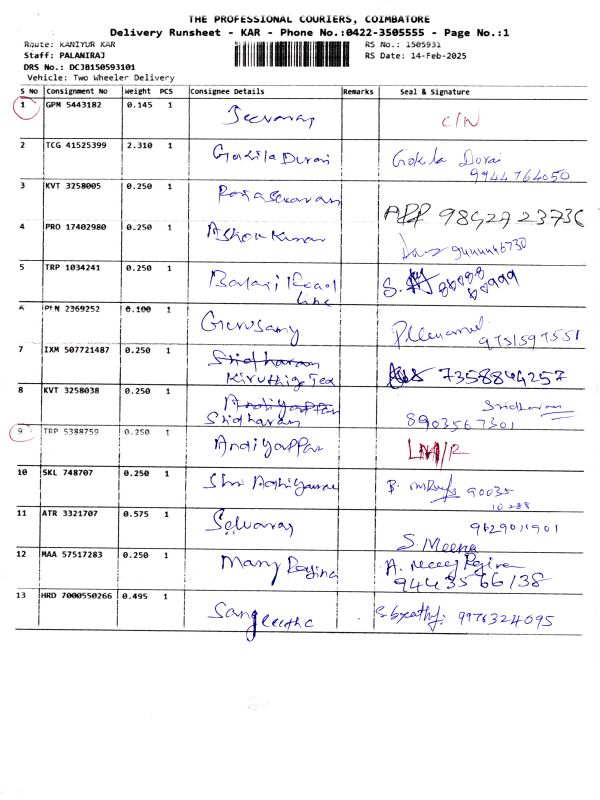 THE PROFESSIONAL COURIERS, COIMBATORE
Delivery Runsheet - KAR - Phone No.:0422-3505555 - Page No.:1
Route: KANIYUR KAR
RS No.: 1505931
Staff: PALANIRAJ
RS Date: 14-Feb-2025
DRS No.: DCJB150593101
Vehicle: Two Wheeler Delivery
S No Consignment No Weight PCS Consignee Details Remarks Seal & Signature
1 GPM 5443182 0.145 1 C/N
2 TCG 41525399 2.310 1 Gokila Durai Gokila Durai
9944764050
3 KVT 3258005 0.250 1 Rajasekaran
4 PRO 17402980 0.250 1 Ashok Kumar 9444446730
5 TRP 1034241 0.250 1 Balaji Road
Line
6 PLN 2369252 0.100 1 Gurusamy 9751597551
7 IXM 507721487 0.250 1 Sridharan 7358844257
Kiruthiga Tex
8 KVT 3258038 0.250 1 Andiyappan Sridharan
Sridharan 8903567301
9 TRP 5388759 0.250 1 Andiyappan
10 SKL 748707 0.250 1 Shri 90035
10288
11 ATR 3321707 0.575 1 Selvaraj
S. Meena
12 MAA 57517283 0.250 1 Mary Regina A. Mary Regina
9443566138
13 HRD 7000550266 0.495 1 Sangeetha 9976324095